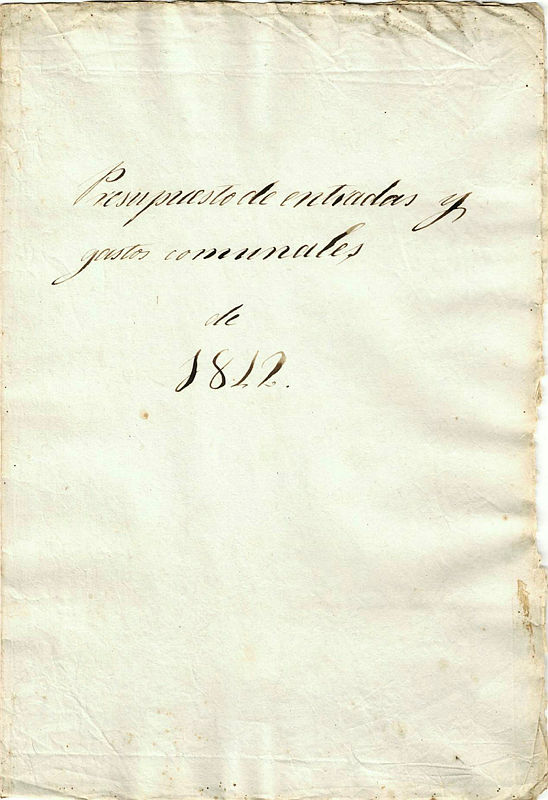 Presupuesto de entradas y
gastos comunales
de
1812.